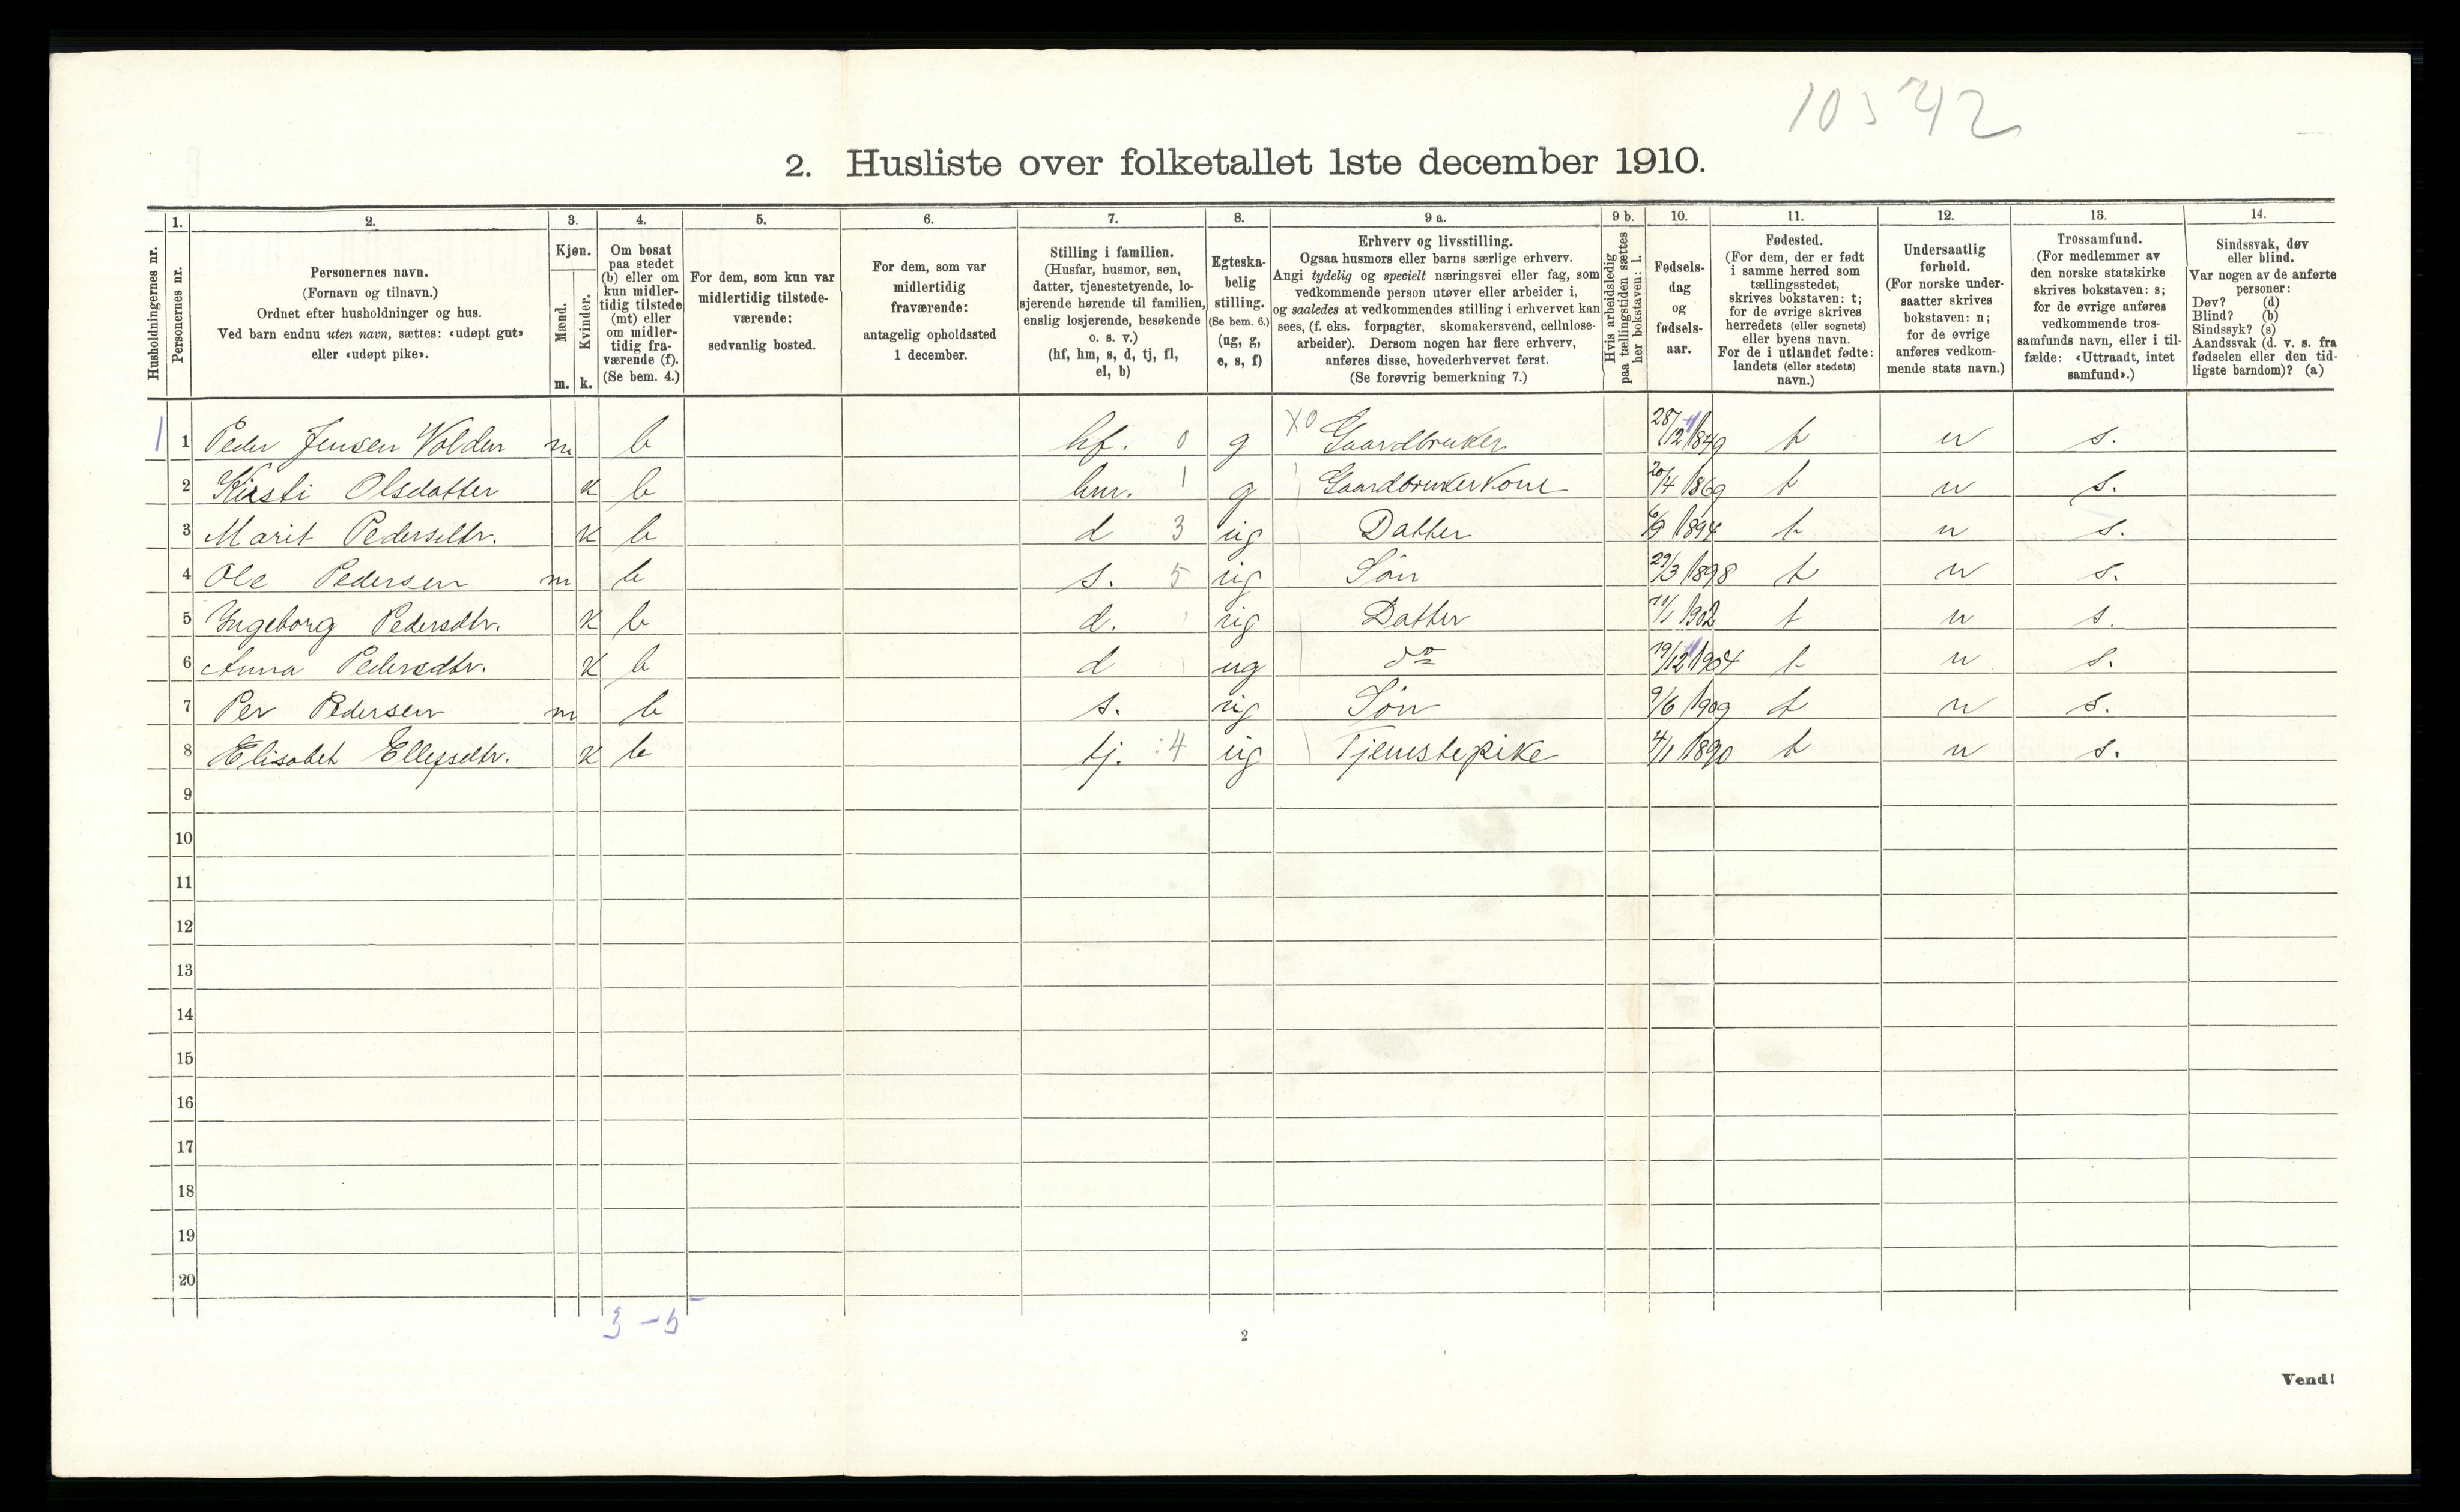 10542
2. Husliste over folketallet 1ste december 1910.
Husholdningernes nr.
1.
Personernes nr.
2.
Personernes navn.
(Fornavn og tilnavn.)
Ordnet efter husholdninger og hus.
Ved barn endnu uten navn, sættes: «udøpt gut»
eller «udøpt pike».
3.
Kjøn.
Mænd.
Kvinder.
m. k.
4.
Om bosat
paa stedet
(b) eller om
kun midler-
tidig tilstede
(mt) eller
om midler-
tidig fra-
værende (f).
(Se bem. 4.)
5.
For dem, som kun var
midlertidig tilstede-
værende:
sedvanlig bosted.
6.
For dem, som var
midlertidig
fraværende:
antagelig opholdssted
1 december.
7.
Stilling i familien.
(Husfar, husmor, søn,
datter, tjenestetyende, lo-
sjerende hørende til familien,
enslig losjerende, besøkende
o. s. v.)
(hf, hm, s, d, tj, fl,
el, b)
8.
Egteska-
belig
stilling.
(Se bem. 6.)
(ug, g,
e, s, f)
9 a.
Erhverv og livsstilling.
Ogsaa husmors eller barns særlige erhverv.
Angi tydelig og specielt næringsvei eller fag, som
vedkommende person utøver eller arbeider i,
og saaledes at vedkommendes stilling i erhvervet kan
sees, (f. eks. forpagter, skomakersvend, cellulose-
arbeider). Dersom nogen har flere erhverv,
anføres disse, hovederhvervet først.
(Se forøvrig bemerkning 7.)
9 b.
Hvis arbeidsledig
paa tællingstiden sættes
her bokstaven: l.
10.
Fødsels-
dag
og
fødsels-
aar.
11.
Fødested.
(For dem, der er født
i samme herred som
tællingsstedet,
skrives bokstaven: t;
for de øvrige skrives
herredets (eller sognets)
eller byens navn.
For de i utlandet fødte:
landets (eller stedets)
navn.)
12.
Undersaatlig
forhold.
(For norske under-
saatter skrives
bokstaven: n;
for de øvrige
anføres vedkom-
mende stats navn.)
13.
Trossamfund.
(For medlemmer av
den norske statskirke
skrives bokstaven: s;
for de øvrige anføres
vedkommende tros-
samfunds navn, eller i til-
fælde: «Uttraadt, intet
samfund».)
14.
Sindssvak, døv
eller blind.
Var nogen av de anførte
personer:
Døv? (d)
Blind? (b)
Sindssyk? (s)
Aandssvak (d. v. s. fra
fødselen eller den tid-
ligste barndom)? (a)
1 1 Peder Jensen Volden m b hf. 0 g X0 Gaardbruker 28/12 1849 t n s.
2 Kirsti Olsdatter k b hm. 1 g Gaardbruker Kone 20/4 1869 t n s.
3 Marit Pedersdtr. k b d 3 ug Datter 6/9 1894 t n s.
4 Ole Pedersen m b s. 5 ug Søn 29/3 1898 t n s.
5 Ingeborg Pedersdtr. k b d. ug Datter 11/1 1902 t n s.
6 Anna Pedersdtr. k b d ug do 19/12 1904 t n s.
7 Per Pedersen m b s. ug Søn 9/6 1909 t n s.
8 Elisabet Ellefsdtr. k b tj. 4 ug Tjenestepike 4/1 1890 t n s.
9
10
11
12
13
14
15
16
17
18
19
20
3 - 5
2
Vend!